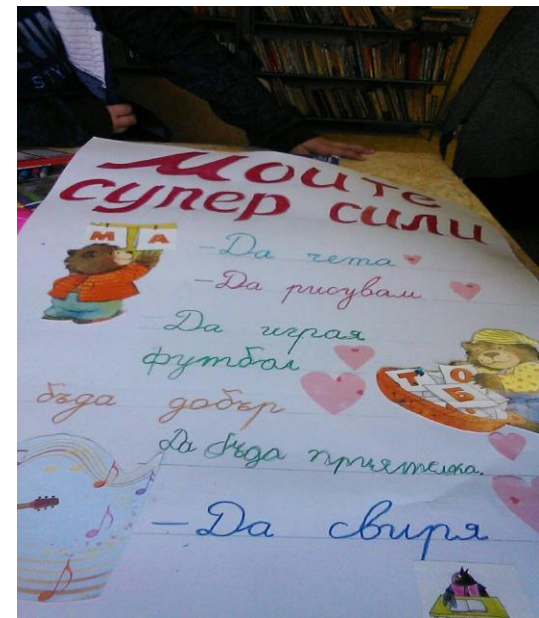 Моите
супер сили
М А
- Да чета
- Да рисувам
Да играя
футбол
Т О Б
бъда добър
Да бъда приятелка.
- Да свиря